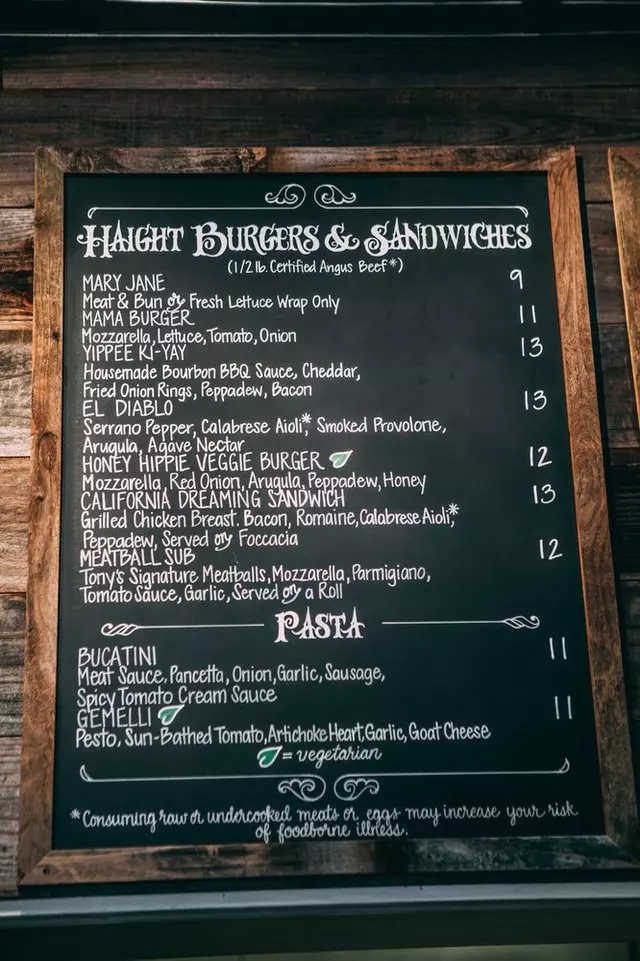 HAIGHT BURGERS & SANDWICHES
(1/2 lb. Certified Angus Beef*)
MARY JANE 9
Meat & Bun or Fresh Lettuce Wrap Only
MAMA BURGER 11
Mozzarella, Lettuce, Tomato, Onion
YIPPEE KI-YAY 13
Housemade Bourbon BBQ Sauce, Cheddar,
Fried Onion Rings, Peppadew, Bacon
EL DIABLO 13
Serrano Pepper, Calabrese Aioli,* Smoked Provolone,
Arugula, Agave Nectar
HONEY HIPPIE VEGGIE BURGER 12
Mozzarella, Red Onion, Arugula, Peppadew, Honey
CALIFORNIA DREAMING SANDWICH 13
Grilled Chicken Breast. Bacon, Romaine, Calabrese Aioli,*
Peppadew, Served on Foccacia
MEATBALL SUB 12
Tony's Signature Meatballs, Mozzarella, Parmigiano,
Tomato Sauce, Garlic, Served on a Roll
PASTA
BUCATINI 11
Meat Sauce, Pancetta, Onion, Garlic, Sausage,
Spicy Tomato Cream Sauce
GEMELLI 11
Pesto, Sun-Bathed Tomato, Artichoke Heart, Garlic, Goat Cheese
= vegetarian
*Consuming raw or undercooked meats or eggs may increase your risk
of foodborne illness.